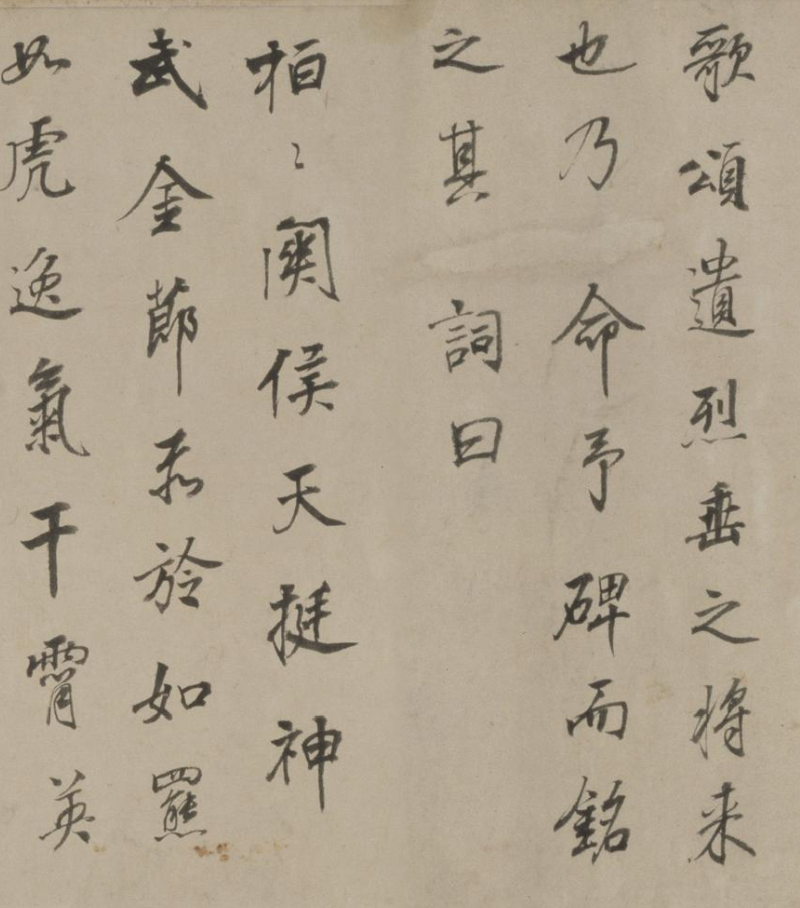 歌頌遺烈垂之將来
也乃命予碑而銘
之其詞曰
桓〻関侯天挺神
武金節赤於如羆
如虎逸氣干霄英